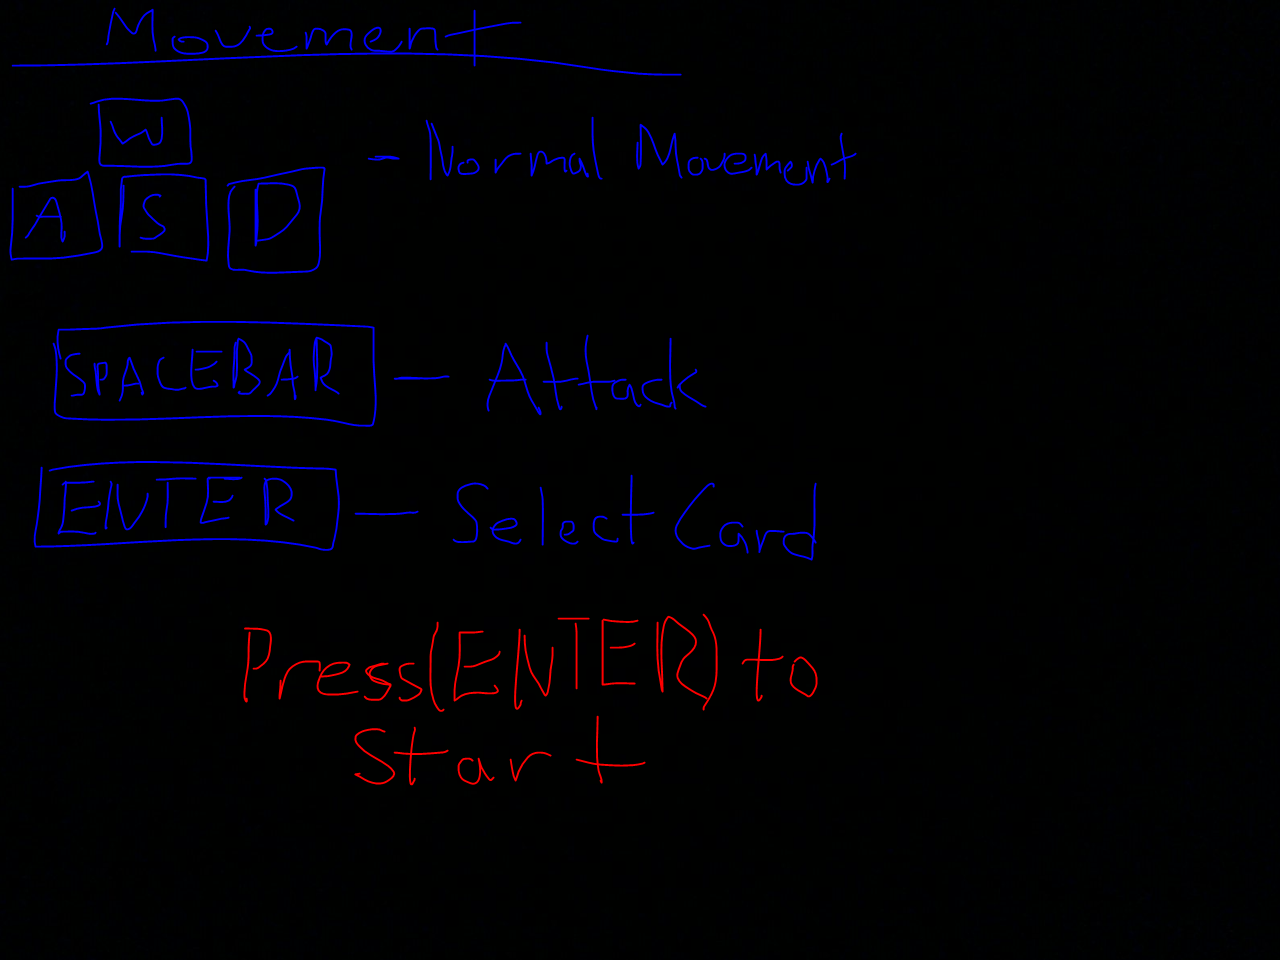 Movement
W - Normal Movement
A S D
SPACEBAR - Attack
ENTER - Select Card
Press (ENTER) to
Start